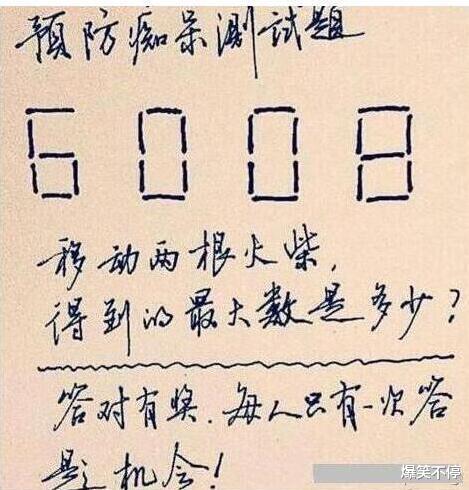 预防痴呆测试题
6008
移动两根火柴,
得到的最大数是多少?
答对有奖.每人只有一次答
题机会!
爆笑不停